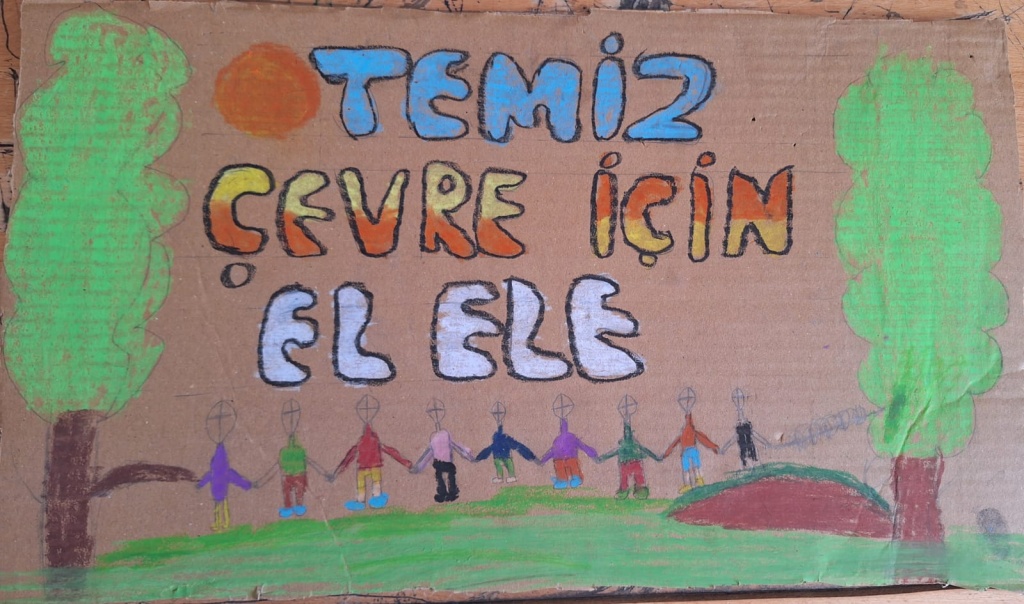 TEMİZ
ÇEVRE İÇİN
EL ELE